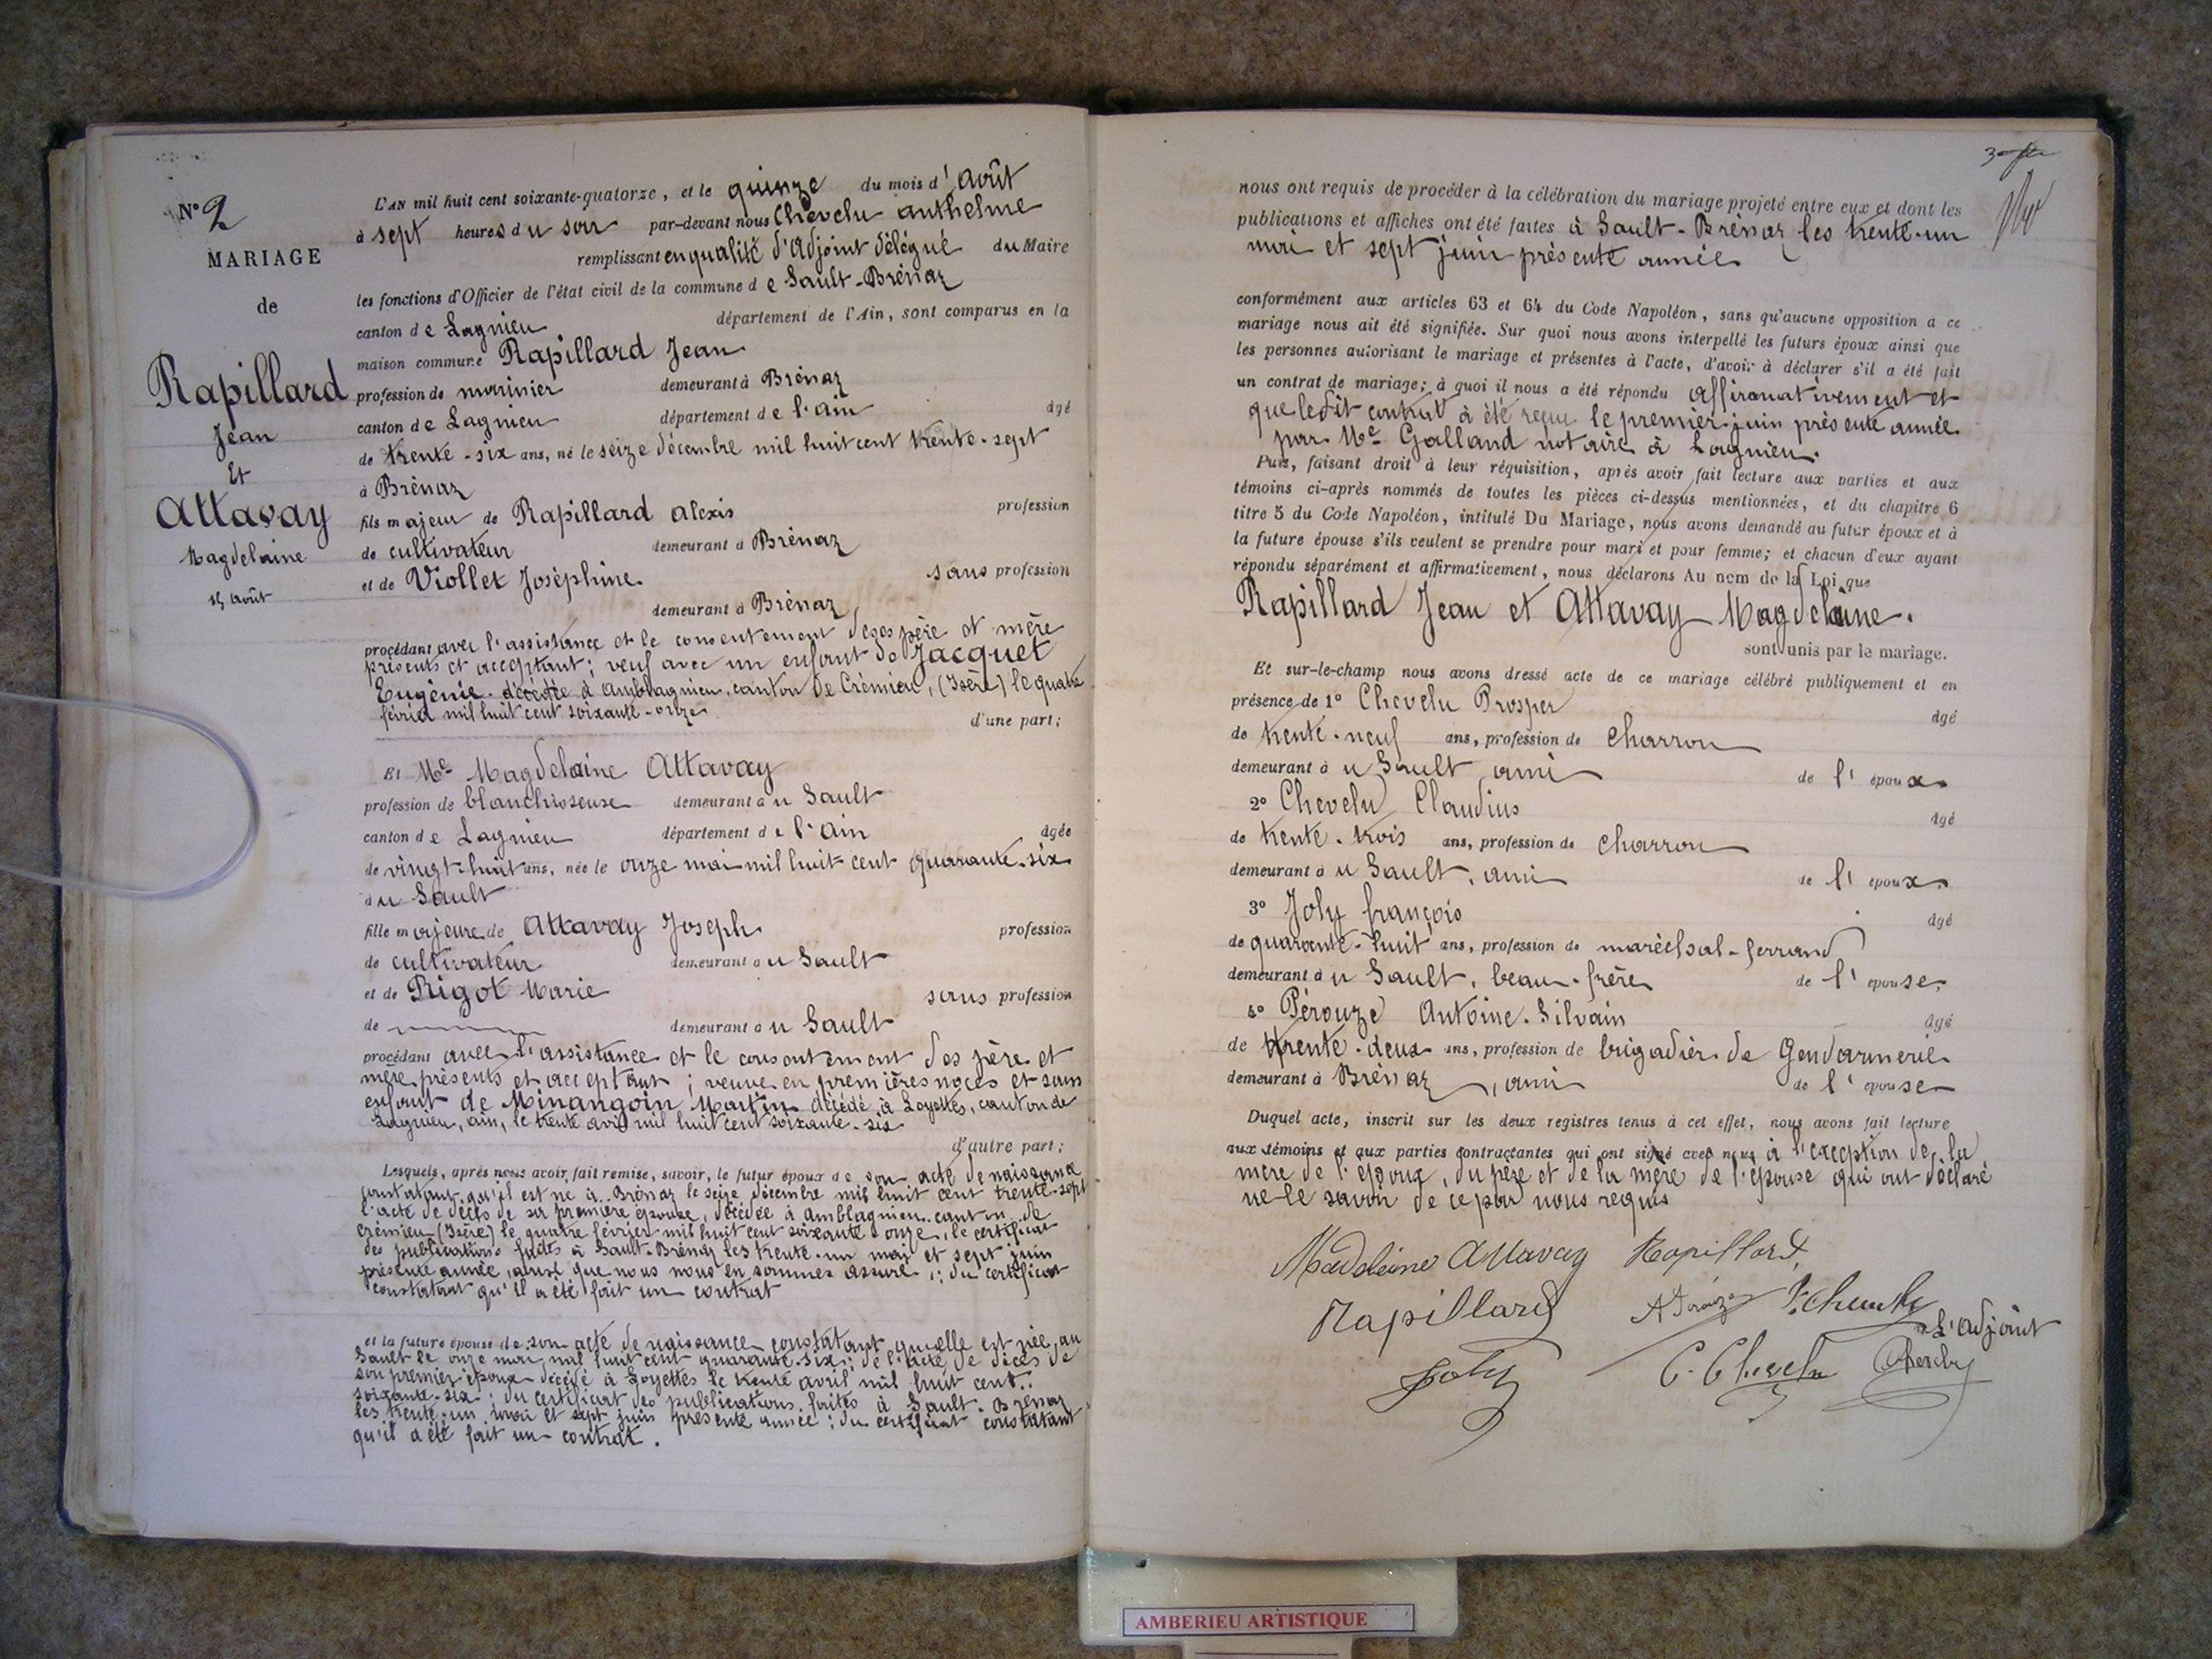 N° 2
MARIAGE
de
Rapillard
Jean
Et
Attavay
Magdelaine
15 août
L'AN mil huit cent soixante-quatorze, et le quinze du mois d'août
à sept heures du soir par-devant nous Chevelu anthelme
remplissant en qualité d'Adjoint délégué du Maire
les fonctions d'Officier de l'état civil de la commune de Sault-Brénaz
canton de Lagnieu département de l'Ain, sont comparus en la
maison commune Rapillard Jean
profession de marinier demeurant à Brénaz
canton de Lagnieu département de l'ain âgé
de trente-six ans, né le seize décembre mil huit cent trente-sept
à Brénaz
fils majeur de Rapillard alexis profession
de cultivateur demeurant à Brénaz
et de Viollet Joséphine sans profession
demeurant à Brénaz
procédant avec l'assistance et le consentement de ses père et mère
présents et acceptant; veuf avec un enfant de Jacquet
Eugénie décédée à amblagnieu, canton de Crémieu, (Isère) le quatre
février mil huit cent soixante-onze
d'une part;
Et Me Magdelaine Attavay
profession de blanchisseuse demeurant à u Sault
canton de Lagnieu département de l'ain âgée
de vingt-huit ans, née le onze mai mil huit cent quarante-six
à u Sault
fille majeure de Attavay Joseph profession
de cultivateur demeurant à u Sault
et de Rigot Marie sans profession
de demeurant à u Sault
procédant avec l'assistance et le consentement des père et
mère présents et acceptant; veuve en premières noces et sans
enfant de Minangoin Martin décédé à Loyettes, canton de
Lagnieu, ain, le trente avril mil huit cent soixante-six
d'autre part;
Lesquels, après nous avoir fait remise, savoir, le futur époux de son acte de naissance
constatant qu'il est né à Brénaz le seize décembre mil huit cent trente-sept
l'acte de décès de sa première épouse, décédée à amblagnieu canton de
crémieu (Isère) le quatre février mil huit cent soixante onze, le certificat
des publications faites à Sault-Brénaz les trente-un mai et sept juin
présente année, ainsi que nous nous en sommes assuré; du certificat
constatant qu'il a été fait un contrat
et la future épouse de son acte de naissance constatant qu'elle est née, au
Sault le onze mai mil huit cent quarante-six; de l'acte de décès de
son premier époux décédé à Loyettes le trente avril mil huit cent
soixante-six; du certificat des publications faites à Sault-Brénaz
les trente-un mai et sept juin présente année; du certificat constatant
qu'il a été fait un contrat.
nous ont requis de procéder à la célébration du mariage projeté entre eux et dont les
publications et affiches ont été faites à Sault-Brénaz les trente-un
mai et sept juin présente année
conformément aux articles 63 et 64 du Code Napoléon, sans qu'aucune opposition à ce
mariage nous ait été signifiée. Sur quoi nous avons interpellé les futurs époux ainsi que
les personnes autorisant le mariage et présentes à l'acte, d'avoir à déclarer s'il a été fait
un contrat de mariage; à quoi il nous a été répondu affirmativement et
que ledit contrat à été reçu le premier juin présente année
par Me Galland notaire à Lagnieu.
Puis, faisant droit à leur réquisition, après avoir fait lecture aux parties et aux
témoins ci-après nommés de toutes les pièces ci-dessus mentionnées, et du chapitre 6
titre 5 du Code Napoléon, intitulé Du Mariage, nous avons demandé au futur époux et à
la future épouse s'ils veulent se prendre pour mari et pour femme; et chacun d'eux ayant
répondu séparément et affirmativement, nous déclarons Au nom de la Loi que
Rapillard Jean et Attavay Magdelaine.
sont unis par le mariage.
Et sur-le-champ nous avons dressé acte de ce mariage célébré publiquement et en
présence de 1° Chevelu Prosper âgé
de trente-neuf ans, profession de charron
demeurant à u Sault, ami de l'époux
2° Chevelu Claudius âgé
de trente-trois ans, profession de charron
demeurant à u Sault, ami de l'époux
3° Joly françois âgé
de quarante-huit ans, profession de maréchal-ferrand
demeurant à u Sault, beau-frère de l'épouse
4° Pérouze Antoine-Silvain âgé
de trente-deux ans, profession de brigadier de Gendarmerie
demeurant à Brénaz, ami de l'épouse
Duquel acte, inscrit sur les deux registres tenus à cet effet, nous avons fait lecture
aux témoins et aux parties contractantes qui ont signé avec nous à l'exception de la
mère de l'époux, du père et de la mère de l'épouse qui ont déclaré
ne le savoir de ce par nous requis
Madeleine Attavay Rapillard
Rapillard A Pérouze P. Chevelu
L'adjoint
Joly C. Chevelu Chevelu
AMBERIEU ARTISTIQUE